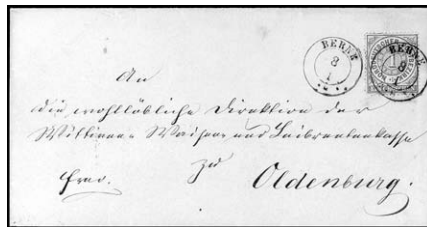 BERNE
8
1
BERNE
8
An
die wohllöbliche Direktion der
Wittwen- Waisen- und Leibrentenkasse
zu
frco.
Oldenburg.